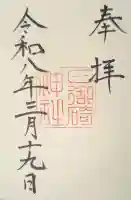 奉拝
令和八年三月十九日
神社